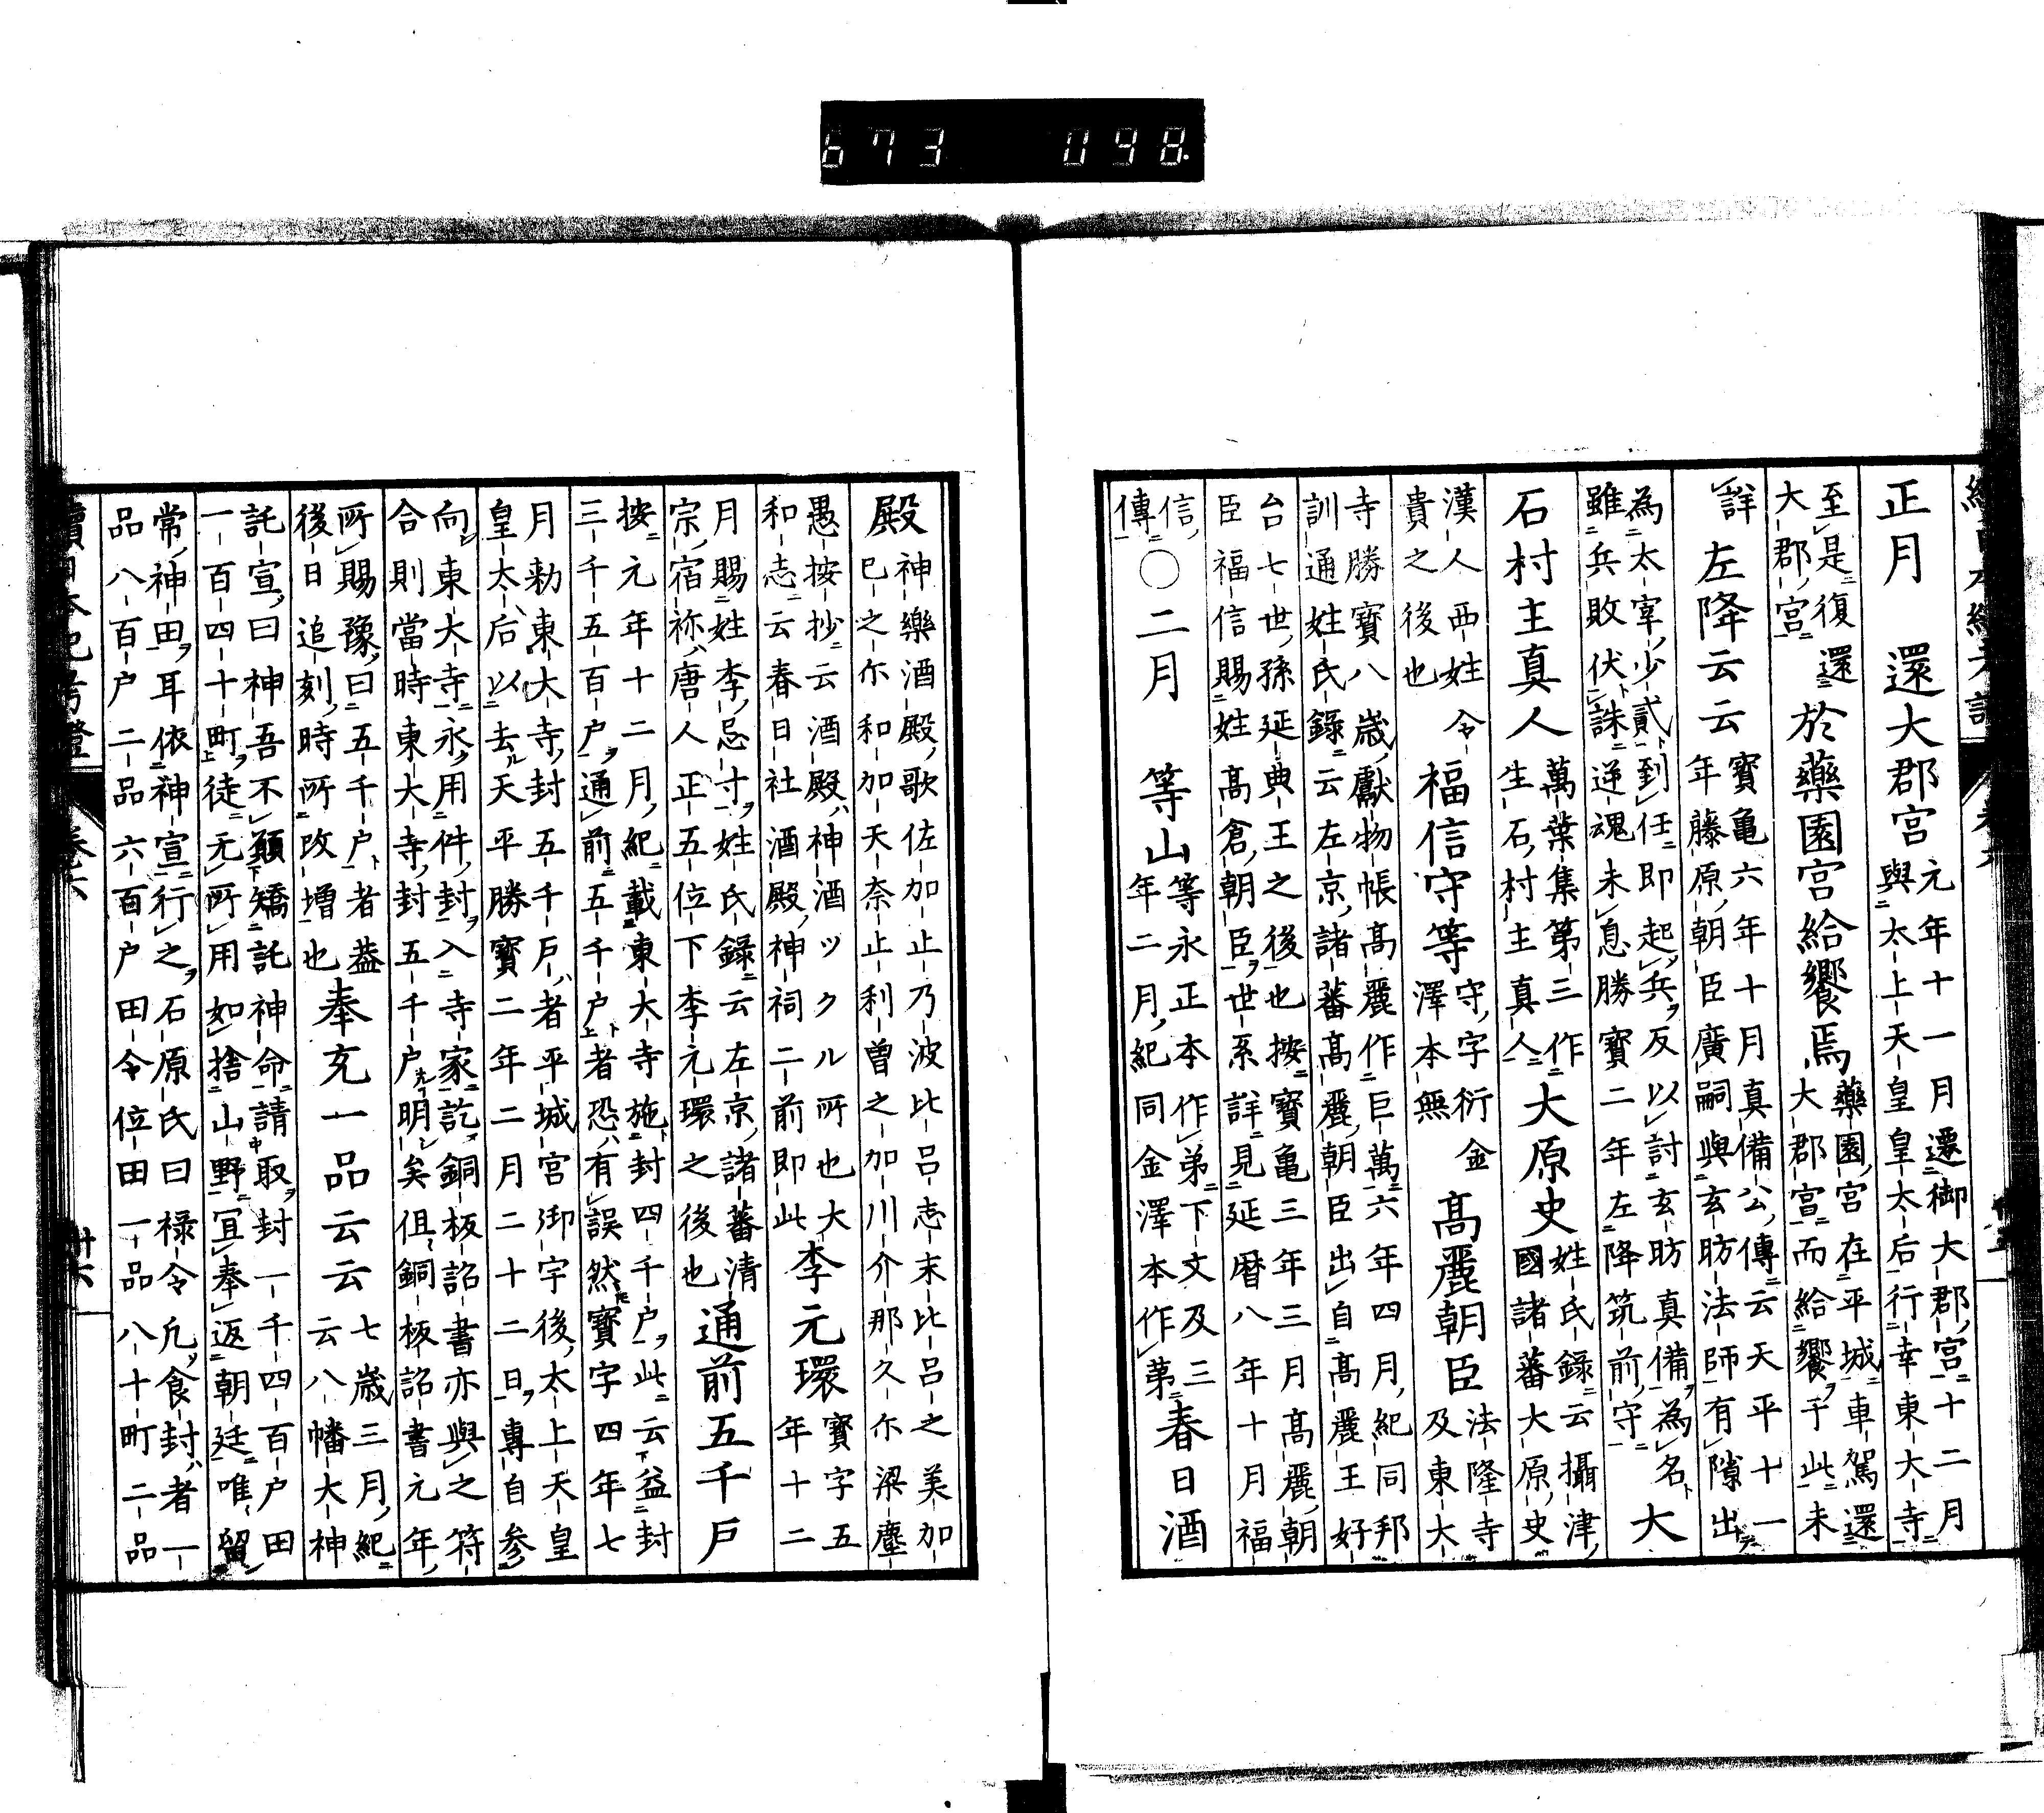 673 098
正月 還大郡宮 元年十一月遷御大郡宮十二月
與太上天皇皇太后行幸東大寺
至是復還
大郡宮
還於藥園宮給饗焉 藥園宮在平城車駕還
大郡宮而給饗于此未
詳
左降云云 寶亀六年十月真備公傳云天平十一
年藤原朝臣廣嗣與玄昉法師有隙出
為太宰少貳到任即起兵反以討玄昉真備為名
雖兵敗伏誅逆魂未息勝寶二年左降筑前守
大
石村主真人 萬葉集第三作
生石村主真人
大原史 姓氏錄云攝津
國諸蕃大原史
漢人西姓令
貴之後也
福信守等 守字衍金
澤本無
高麗朝臣 法隆寺
及東大
寺勝寶八歳獻物帳高麗作巨萬六年四月紀同邦
訓通姓氏錄云左京諸蕃高麗朝臣出自高麗王好
台七世孫延典王之後也按寶亀三年三月高麗朝
臣福信賜姓高倉朝臣世系詳見延暦八年十月福
信
傳
〇二月 等山 等永正本作弟下文及三
年二月紀同金澤本作第
春日酒
殿 神樂酒殿歌佐加止乃波比呂志末比呂之美加
巳之尓和加天奈止利曽之加川介那久尓梁塵
愚按抄云酒殿ハ神酒ツクル所也大
和志云春日社酒殿神祠二前即此
李元環 寶字五
年十二
月賜姓李忌寸姓氏録云左京諸蕃清
宗宿祢唐人正五位下李元環之後也
通前五千戸
按元年十二月紀載東大寺施封四千户此云益封
三千五百户通前五千户者恐有誤然寶字四年七
月勅東大寺封五千戸者平城宮御宇後太上天皇
皇太后以去天平勝寶二年二月二十二日專自參
向東大寺永用件封入寺家訖銅板詔書亦與之符
合則當時東大寺封五千户明矣但銅板詔書元年
所賜豫曰五千户者葢
後日追刻時所改増也
奉充一品云云 七歳三月紀
云八幡大神
託宣曰神吾不願矯託神命請取封一千四百户田
一百四十町徒无所用如捨山野宜奉返朝廷唯留
常神田耳依神宣行之石原氏曰禄令凡食封者一
品八百户二品六百户田令位田一品八十町二品